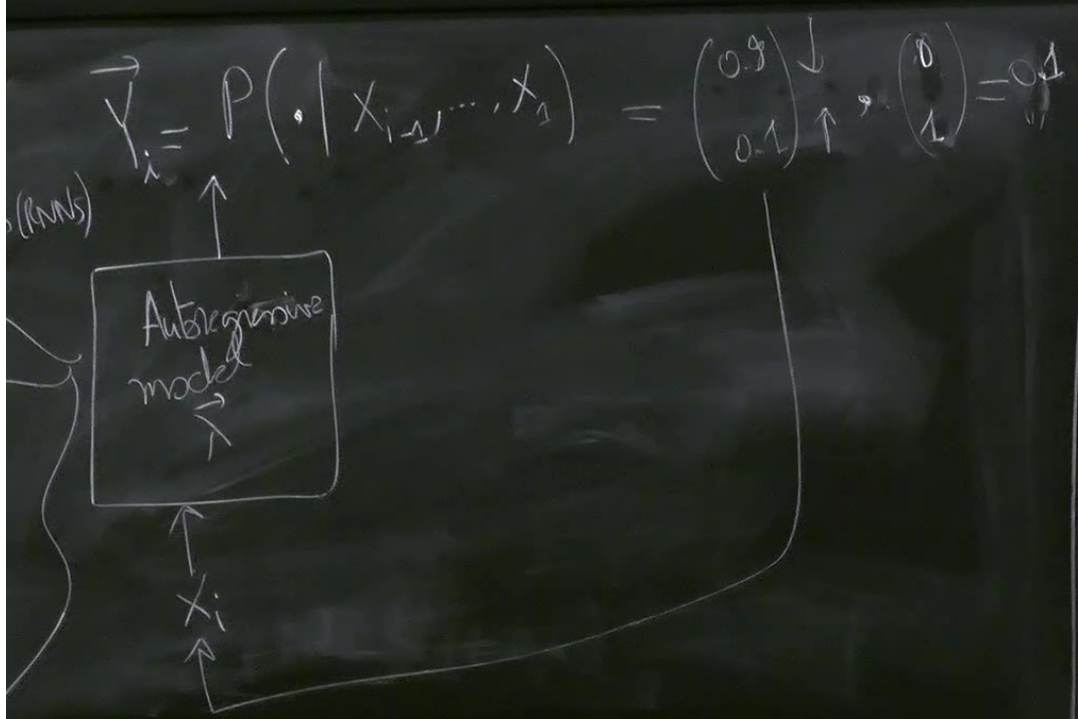 Y⃗ᵢ = P(· | Xᵢ₋₁, ..., X₁) = (0.9 0.1) ↓ ↑ · (0 1) = 0.1
(RNNs)
Autoregressive
model
λ⃗
Xᵢ